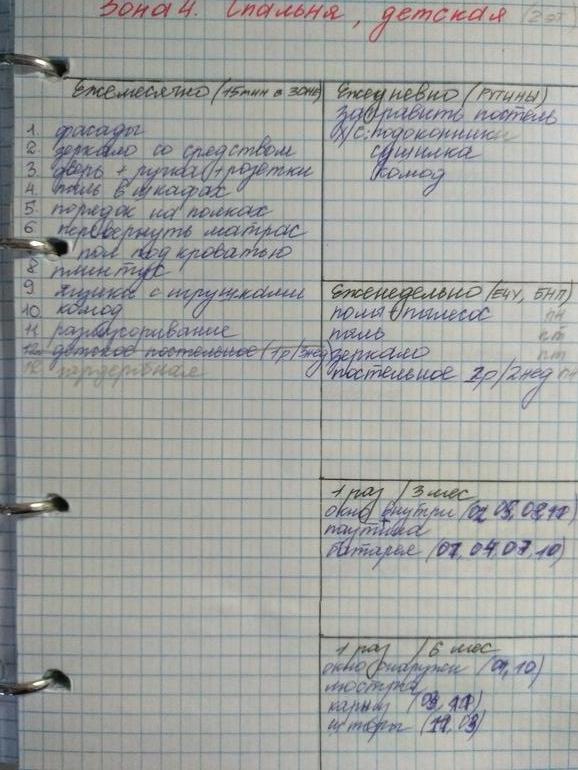 Зона 4. Спальня, детская (2 эт)
Ежемесячно (15 мин в зоне)
1. фасады
2. зеркало со средством
3. дверь + ручка + розетки
4. пыль в шкафах
5. порядок на полках
6. перевернуть матрас
пол под кроватью
8 плинтус
9. ящика с игрушками
10. комод
11. размусоривание
12. детское постельное (1р/3нед)
гардеробная
Ежедневно (рутины)
заправить постель
х/с: подоконники
сушилка
комод
Еженедельно (ЕЧУ, БНП)
полы + пылесос пн
пыль пт
зеркало пт
постельное 1р/2нед пн
1 раз / 3 мес
окно внутри (02
паутина
батарея (01, 04, 07, 10)
1 раз / 6 мес
окно снаружи (04, 10)
люстра
карниз
шторы